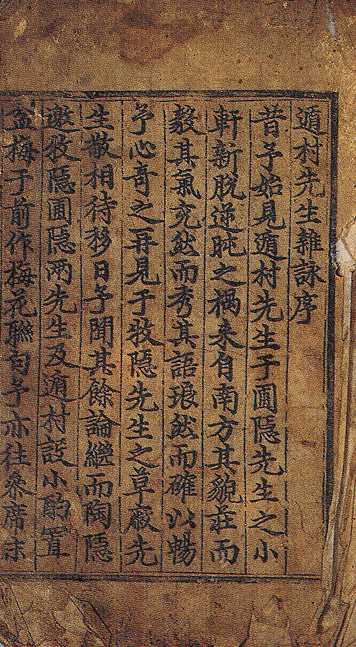 遁村先生雜詠序
昔予始見遁村先生于圃隱先生之小
軒新脫逆旽之禍来自南方其貌莊而
敖其氣充然而秀其語琅然而確以暢
予心奇之再見于牧隱先生之草廬先
生敬相待移日予聞其餘論繼而陶隱
邀牧隱圃隱兩先生及遁村設小酌置
盆梅于前作梅花聯句予亦往參席末